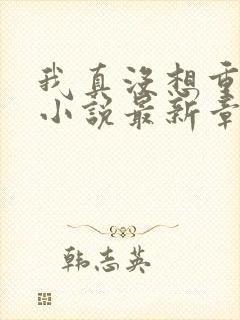 我真没想重
小说最新章
韩志英